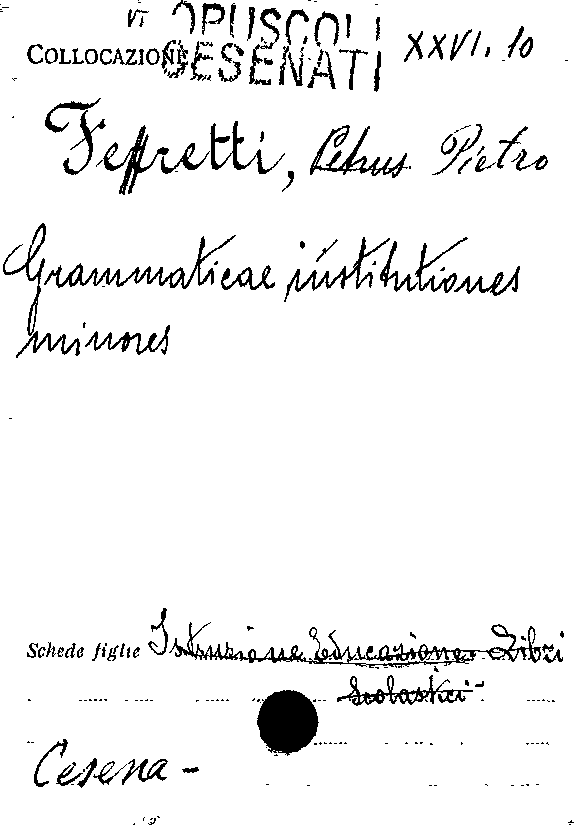 VT OPUSCOLI
COLLOCAZIONE CESENATI XXVI. 10
Feffretti, Petrus Pietro
Grammaticae institutiones
minores
Schede figlie Istruzione Educazione. Libri
Scolastici -
Cesena -